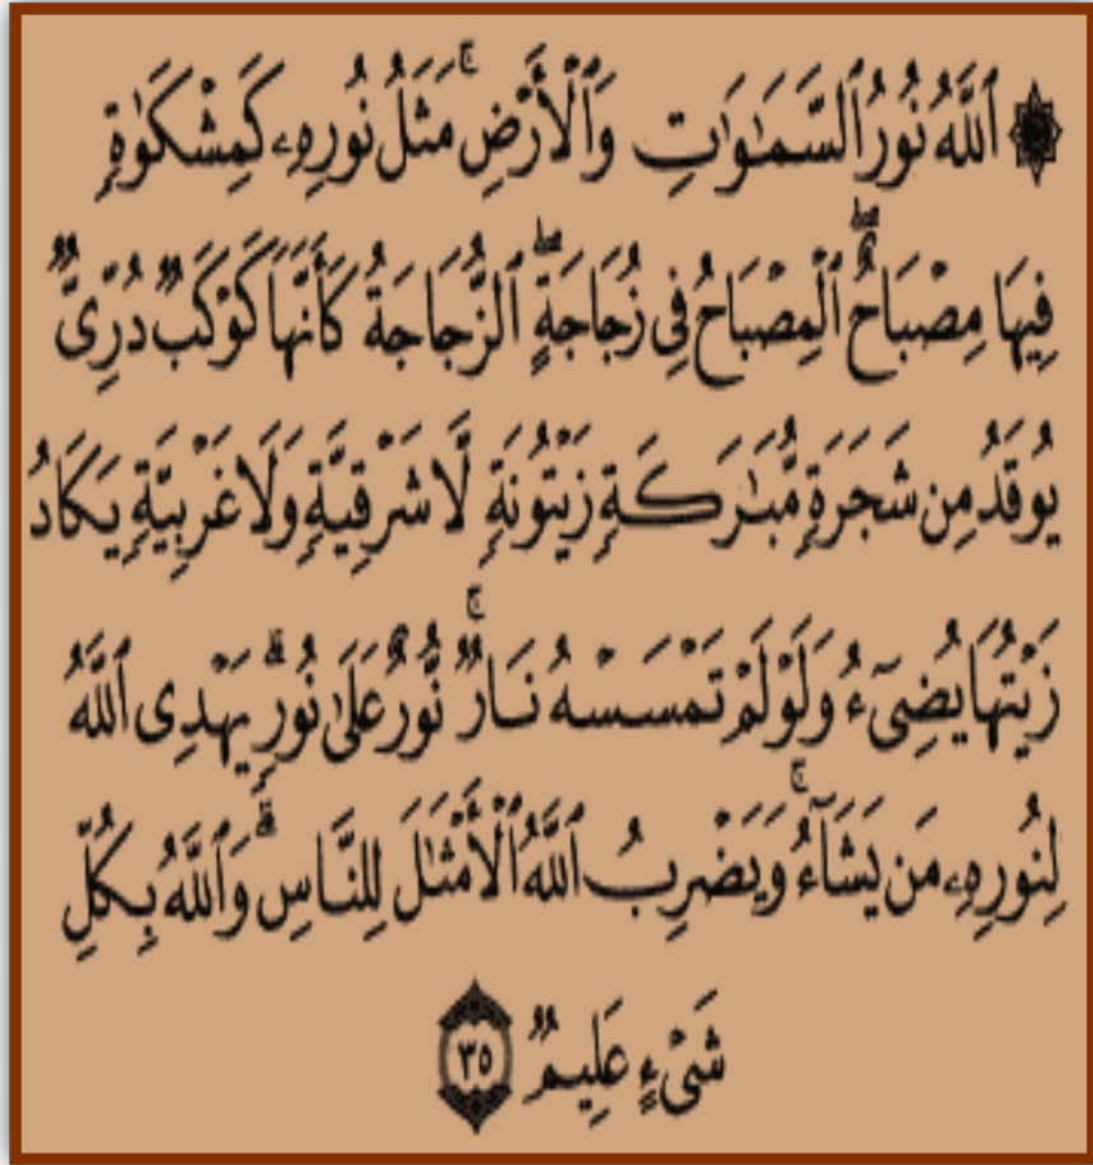 ۞ ٱللَّهُ نُورُ ٱلسَّمَـٰوَٰتِ وَٱلْأَرْضِ ۚ مَثَلُ نُورِهِۦ كَمِشْكَوٰةٍ
فِيهَا مِصْبَاحٌ ۖ ٱلْمِصْبَاحُ فِى زُجَاجَةٍ ۖ ٱلزُّجَاجَةُ كَأَنَّهَا كَوْكَبٌ دُرِّىٌّ
يُوقَدُ مِن شَجَرَةٍ مُّبَـٰرَكَةٍ زَيْتُونَةٍ لَّا شَرْقِيَّةٍ وَلَا غَرْبِيَّةٍ يَكَادُ
زَيْتُهَا يُضِىٓءُ وَلَوْ لَمْ تَمْسَسْهُ نَارٌ ۚ نُّورٌ عَلَىٰ نُورٍ ۗ يَهْدِى ٱللَّهُ
لِنُورِهِۦ مَن يَشَآءُ ۚ وَيَضْرِبُ ٱللَّهُ ٱلْأَمْثَـٰلَ لِلنَّاسِ ۗ وَٱللَّهُ بِكُلِّ
شَىْءٍ عَلِيمٌ ٣٥